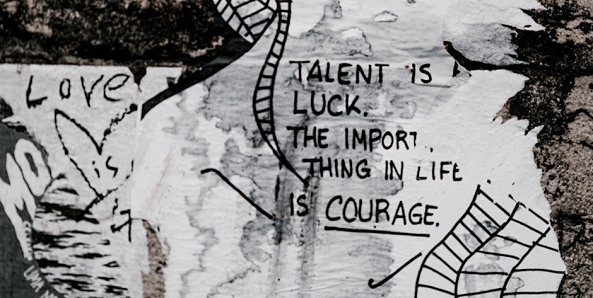 Love
is
TALENT IS
LUCK.
THE IMPORT
THING IN LIFE
IS COURAGE.